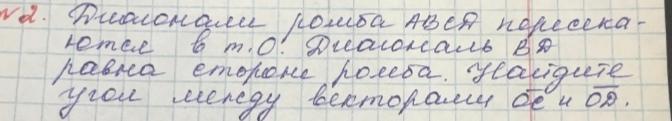 №2. Диагонали ромба ABCД пересека-
ются в т.O. Диагональ BД
равна стороне ромба. Найдите
угол между векторами OC и OD.